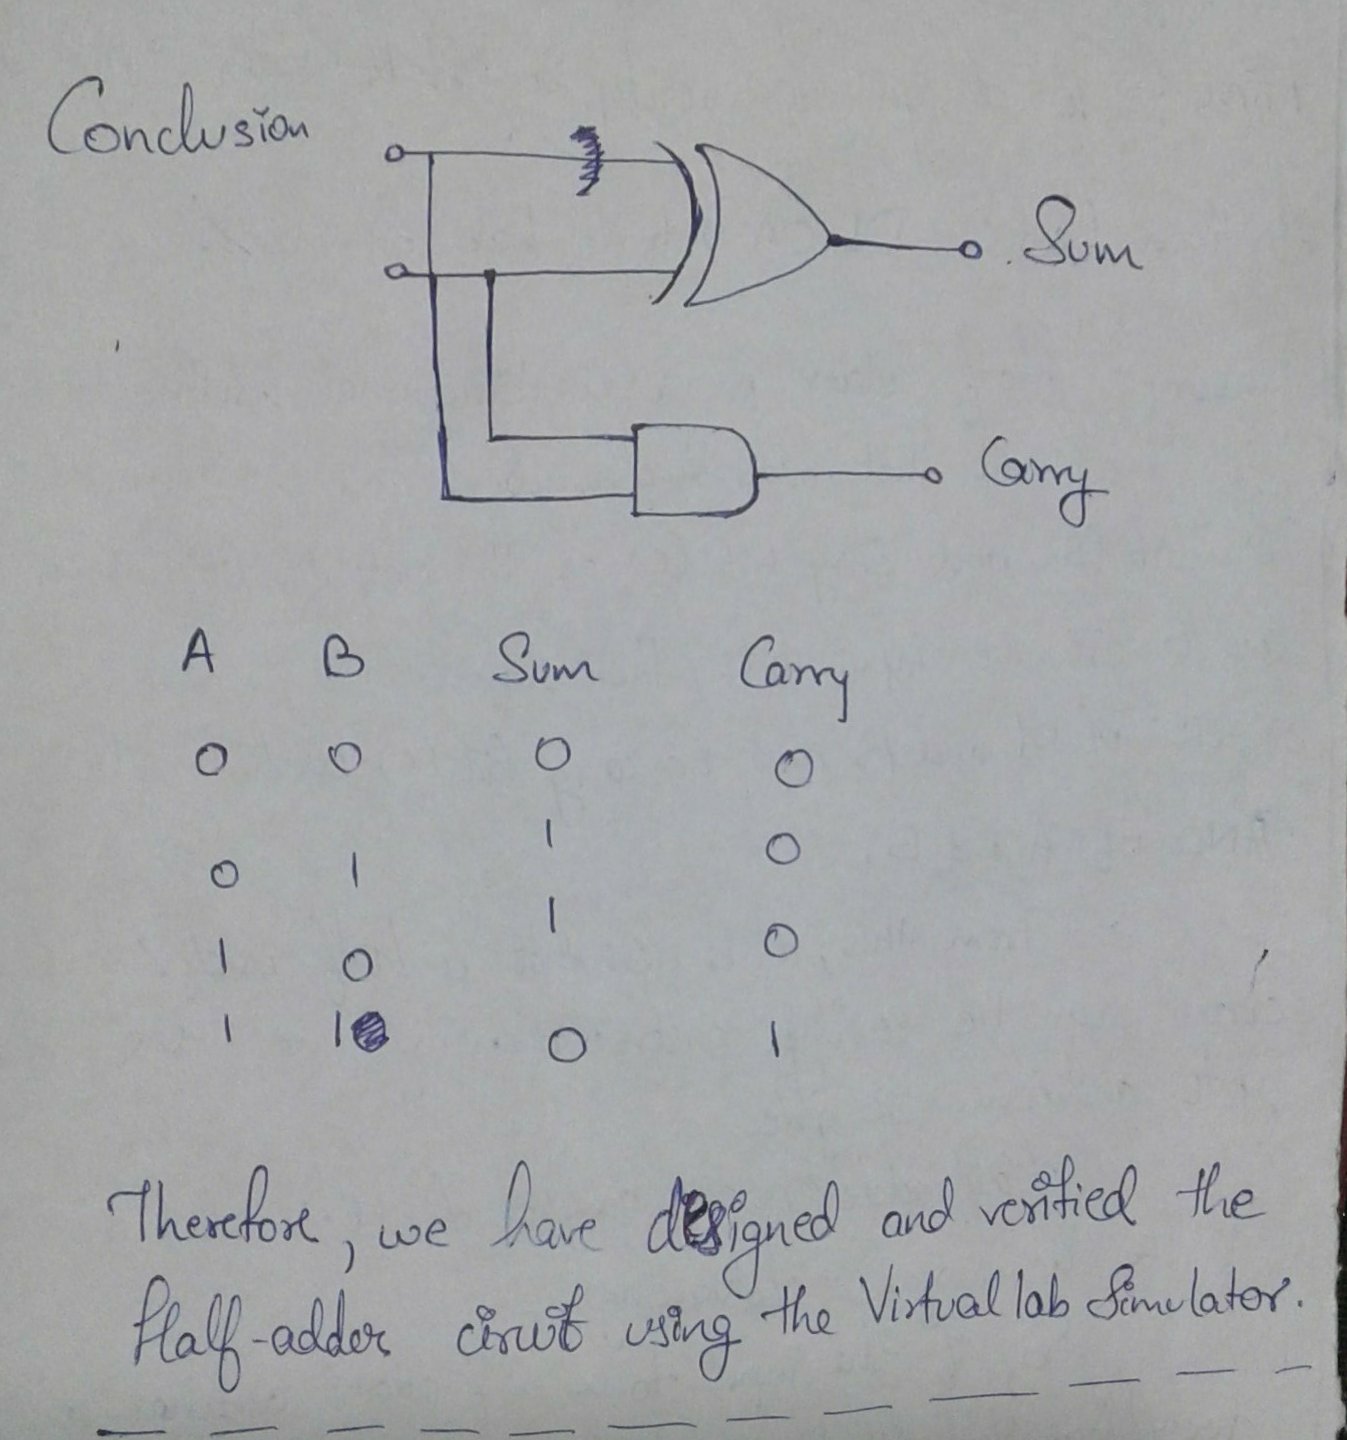 Conclusion
Sum
Carry
A B Sum Carry
0 0 0 0
0 1 1 0
1 0 1 0
1 1 0 1
Therefore, we have designed and verified the
Half-adder ciruit using the Virtual lab Simulator.